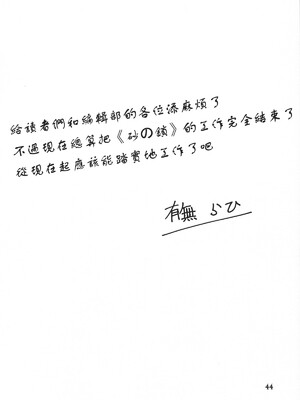 給讀者們和編輯部的各位添麻煩了
不過現在總算把《砂の鎖》的工作完全結束了
從現在起應該能踏實地工作了吧
有無 らひ
44